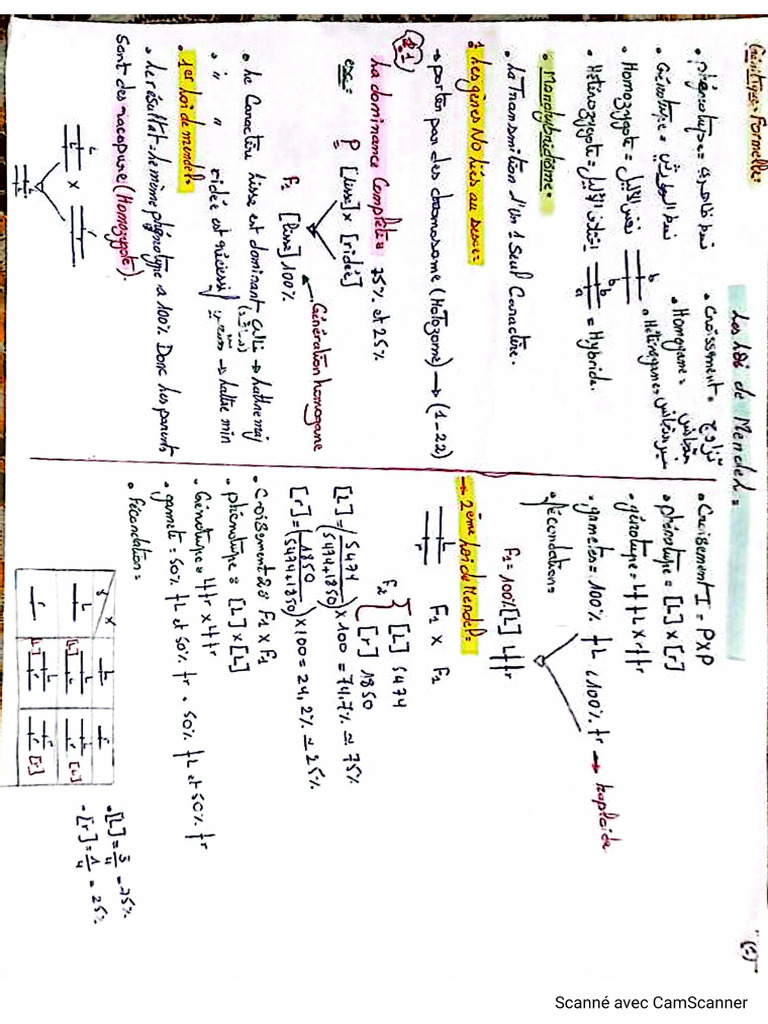 (1)
Les loi de Mendel =
Génétique Formelle =
• phénotype = نمط ظاهري
• Génotype = نمط الوراثي
• Homozygote = نفس الأليل b b
• Hétérozygote = اختلاف الأليل b a = Hybride.
• Croissement = تزاوج
• Homogame = متجانس
• Hétérogame = غير متجانس
• Monohybridisme =
• La Transmition d'un 1 Seul Caractère.
1 Les gènes No liés au sexe =
→ porten par des chromosome (Hotozome) → (1-22)
1.1
La dominance Complète = 75% et 25%
exe = P [lisse] x [ridée]
F1 [lisse] 100%
Génération homogane
• Le Caractère lisse est dominant → lettre maj
• " " ridée est récessif → lettre min
• 1er loi de mendel =
• Le résultat = le même phénotype a 100% Donc les parents
sont des racepure (Homozygote).
L x r
• Croisement I = P x P
• phénotype = [L] x [r]
• génotype = L╫L x r╫r
• gamètes = 100% ╀L , 100% ╀r → haploide
• fécondation =
F1 = 100% [L] L╫r
→ 2ème loi de Mendel =
L r F1 x F1
F2 { [L] 5474
[r] 1850
[L] = (5474 / (5474+1850)) x 100 = 74.7% ≃ 75%
[r] = (1850 / (5474+1850)) x 100 = 24,2% ≃ 25%
• Croisement 2 = F1 x F1
• phénotype = [L] x [L]
• Génotype = L╫r x L╫r
• gamete = 50% ╀L et 50% ╀r . 50% ╀L et 50% ╀r
• Fécondation =
L r
L [L] [L]
r [L] [r]
• [L] = 3/4 = 75%
- [r] = 1/4 = 25%
Scanné avec CamScanner